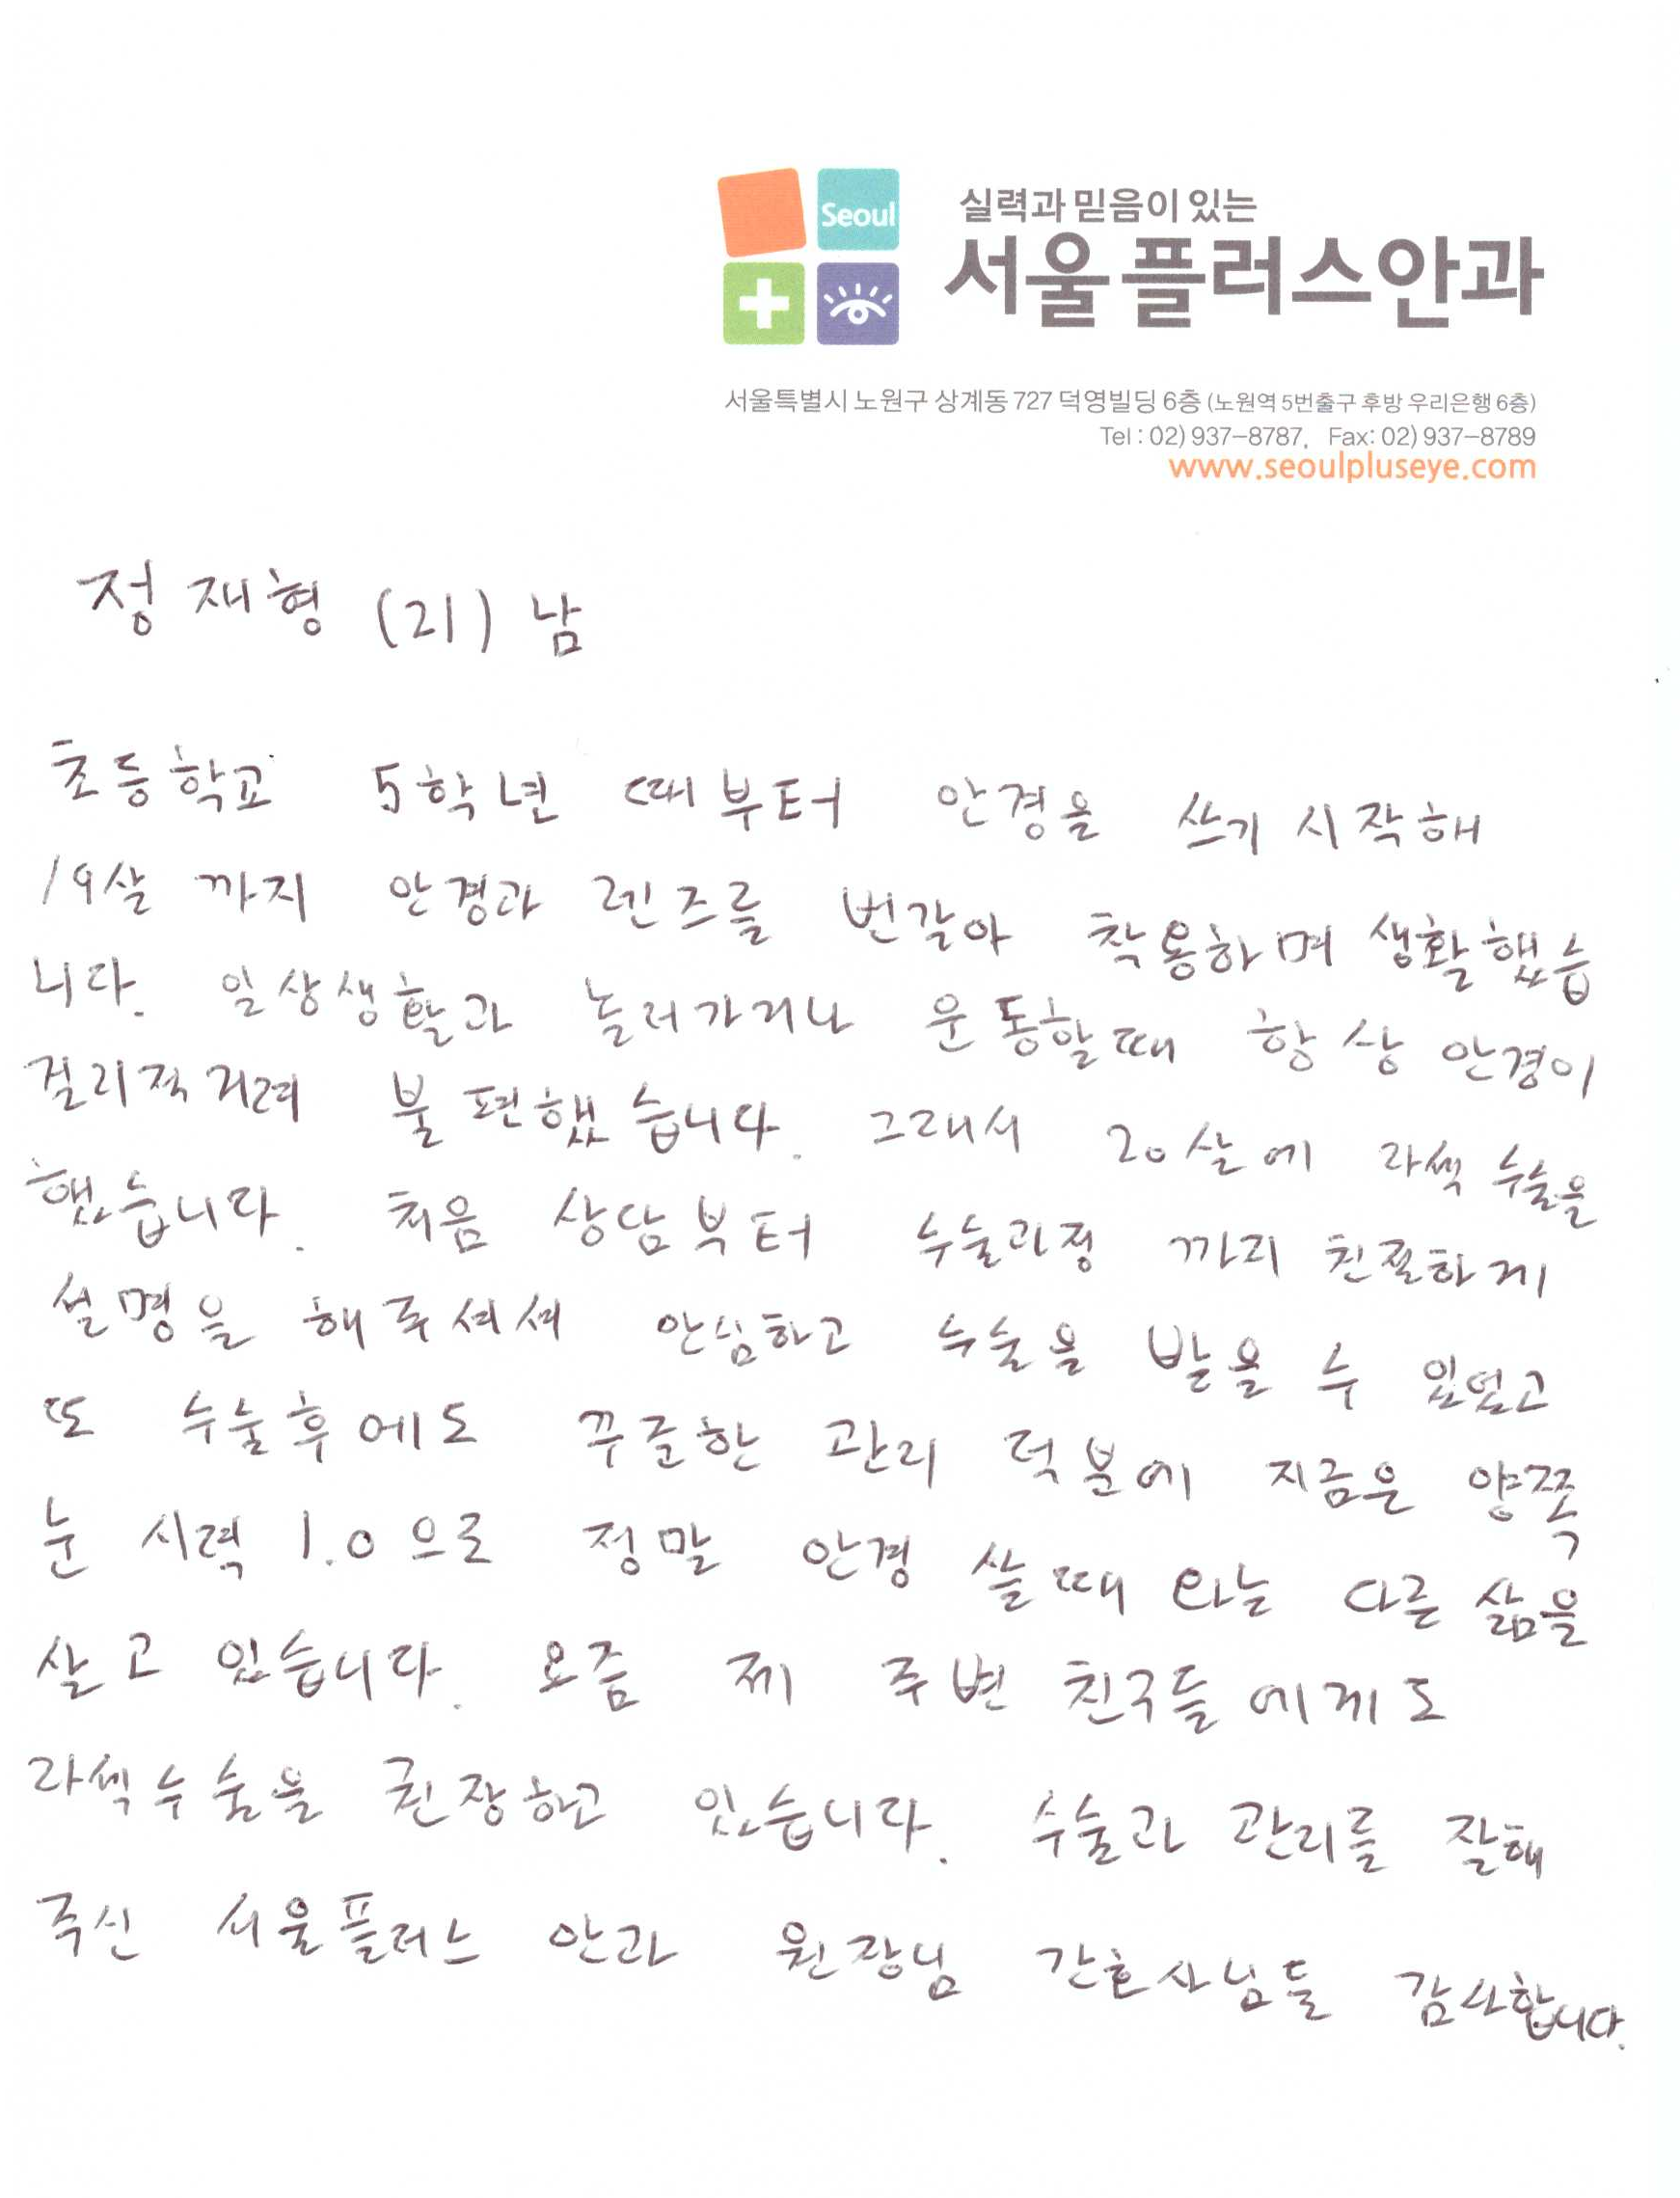 Seoul
실력과 믿음이 있는
서울플러스안과
서울특별시 노원구 상계동 727 덕영빌딩 6층 (노원역 5번출구 후방 우리은행 6층)
Tel : 02) 937-8787, Fax: 02) 937-8789
www.seoulpluseye.com
정재형 (21) 남
초등학교 5학년 때부터 안경을 쓰기 시작해
19살 까지 안경과 렌즈를 번갈아 착용하며 생활했습
니다. 일상생활과 놀러가거나 운동할때 항상 안경이
걸리적거려 불편했습니다. 그래서 20살에 라섹 수술을
했습니다. 처음 상담부터 수술과정 까지 친절하게
설명을 해주셔서 안심하고 수술을 받을 수 있었고
또 수술후에도 꾸준한 관리 덕분에 지금은 양쪽
눈 시력 1.0으로 정말 안경 쓸때 와는 다른 삶을
살고 있습니다. 요즘 제 주변 친구들에게도
라섹수술을 권장하고 있습니다. 수술과 관리를 잘해
주신 서울플러스 안과 원장님 간호사님들 감사합니다.